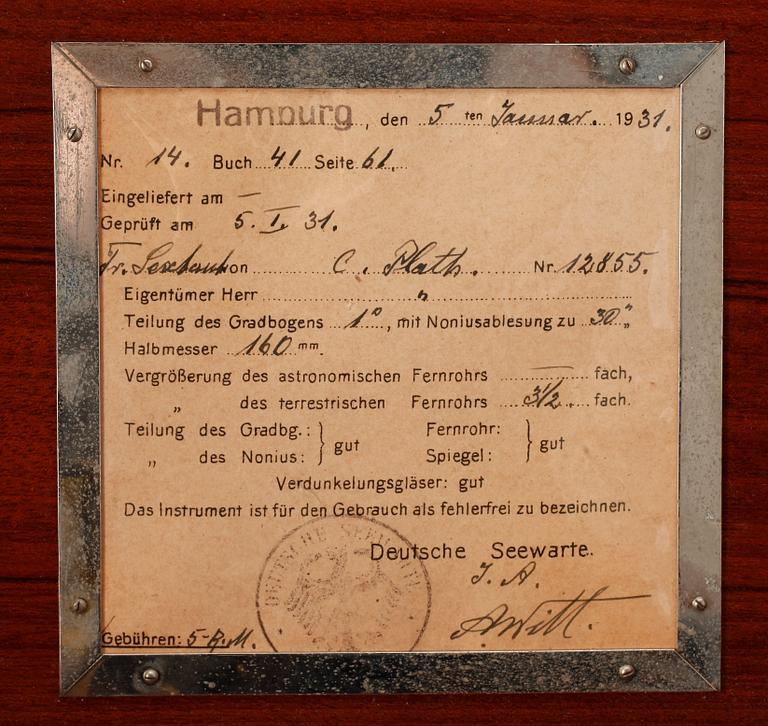 Hamburg, den 5ten Januar. 1931.
Nr. 14. Buch 41 Seite 61.
Eingeliefert am —
Geprüft am 5. I. 31.
Tr. Sextant von C. Plath. Nr. 12855.
Eigentümer Herr "
Teilung des Gradbogens 1°, mit Noniusablesung zu 30"
Halbmesser 160 mm.
Vergrößerung des astronomischen Fernrohrs — fach,
" des terrestrischen Fernrohrs 3½ fach.
Teilung des Gradbg.: } gut Fernrohr: } gut
" des Nonius: Spiegel:
Verdunkelungsgläser: gut
Das Instrument ist für den Gebrauch als fehlerfrei zu bezeichnen.
Deutsche Seewarte.
J. A.
A. Witt.
DEUTSCHE SEEWARTE
Gebühren: 5- R.M.